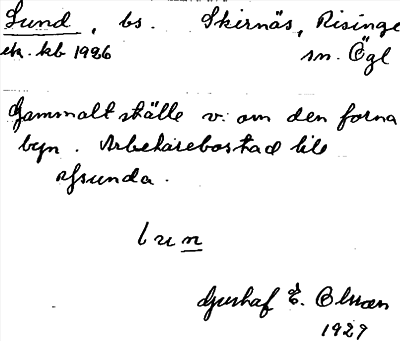 Lund, bs. Skirnäs, Risinge
ek. kb 1986 sn. Ögl
Gammalt ställe v. om den forna
byn. Arbetarebostad till
lun
Gustaf E. Olsson
1929